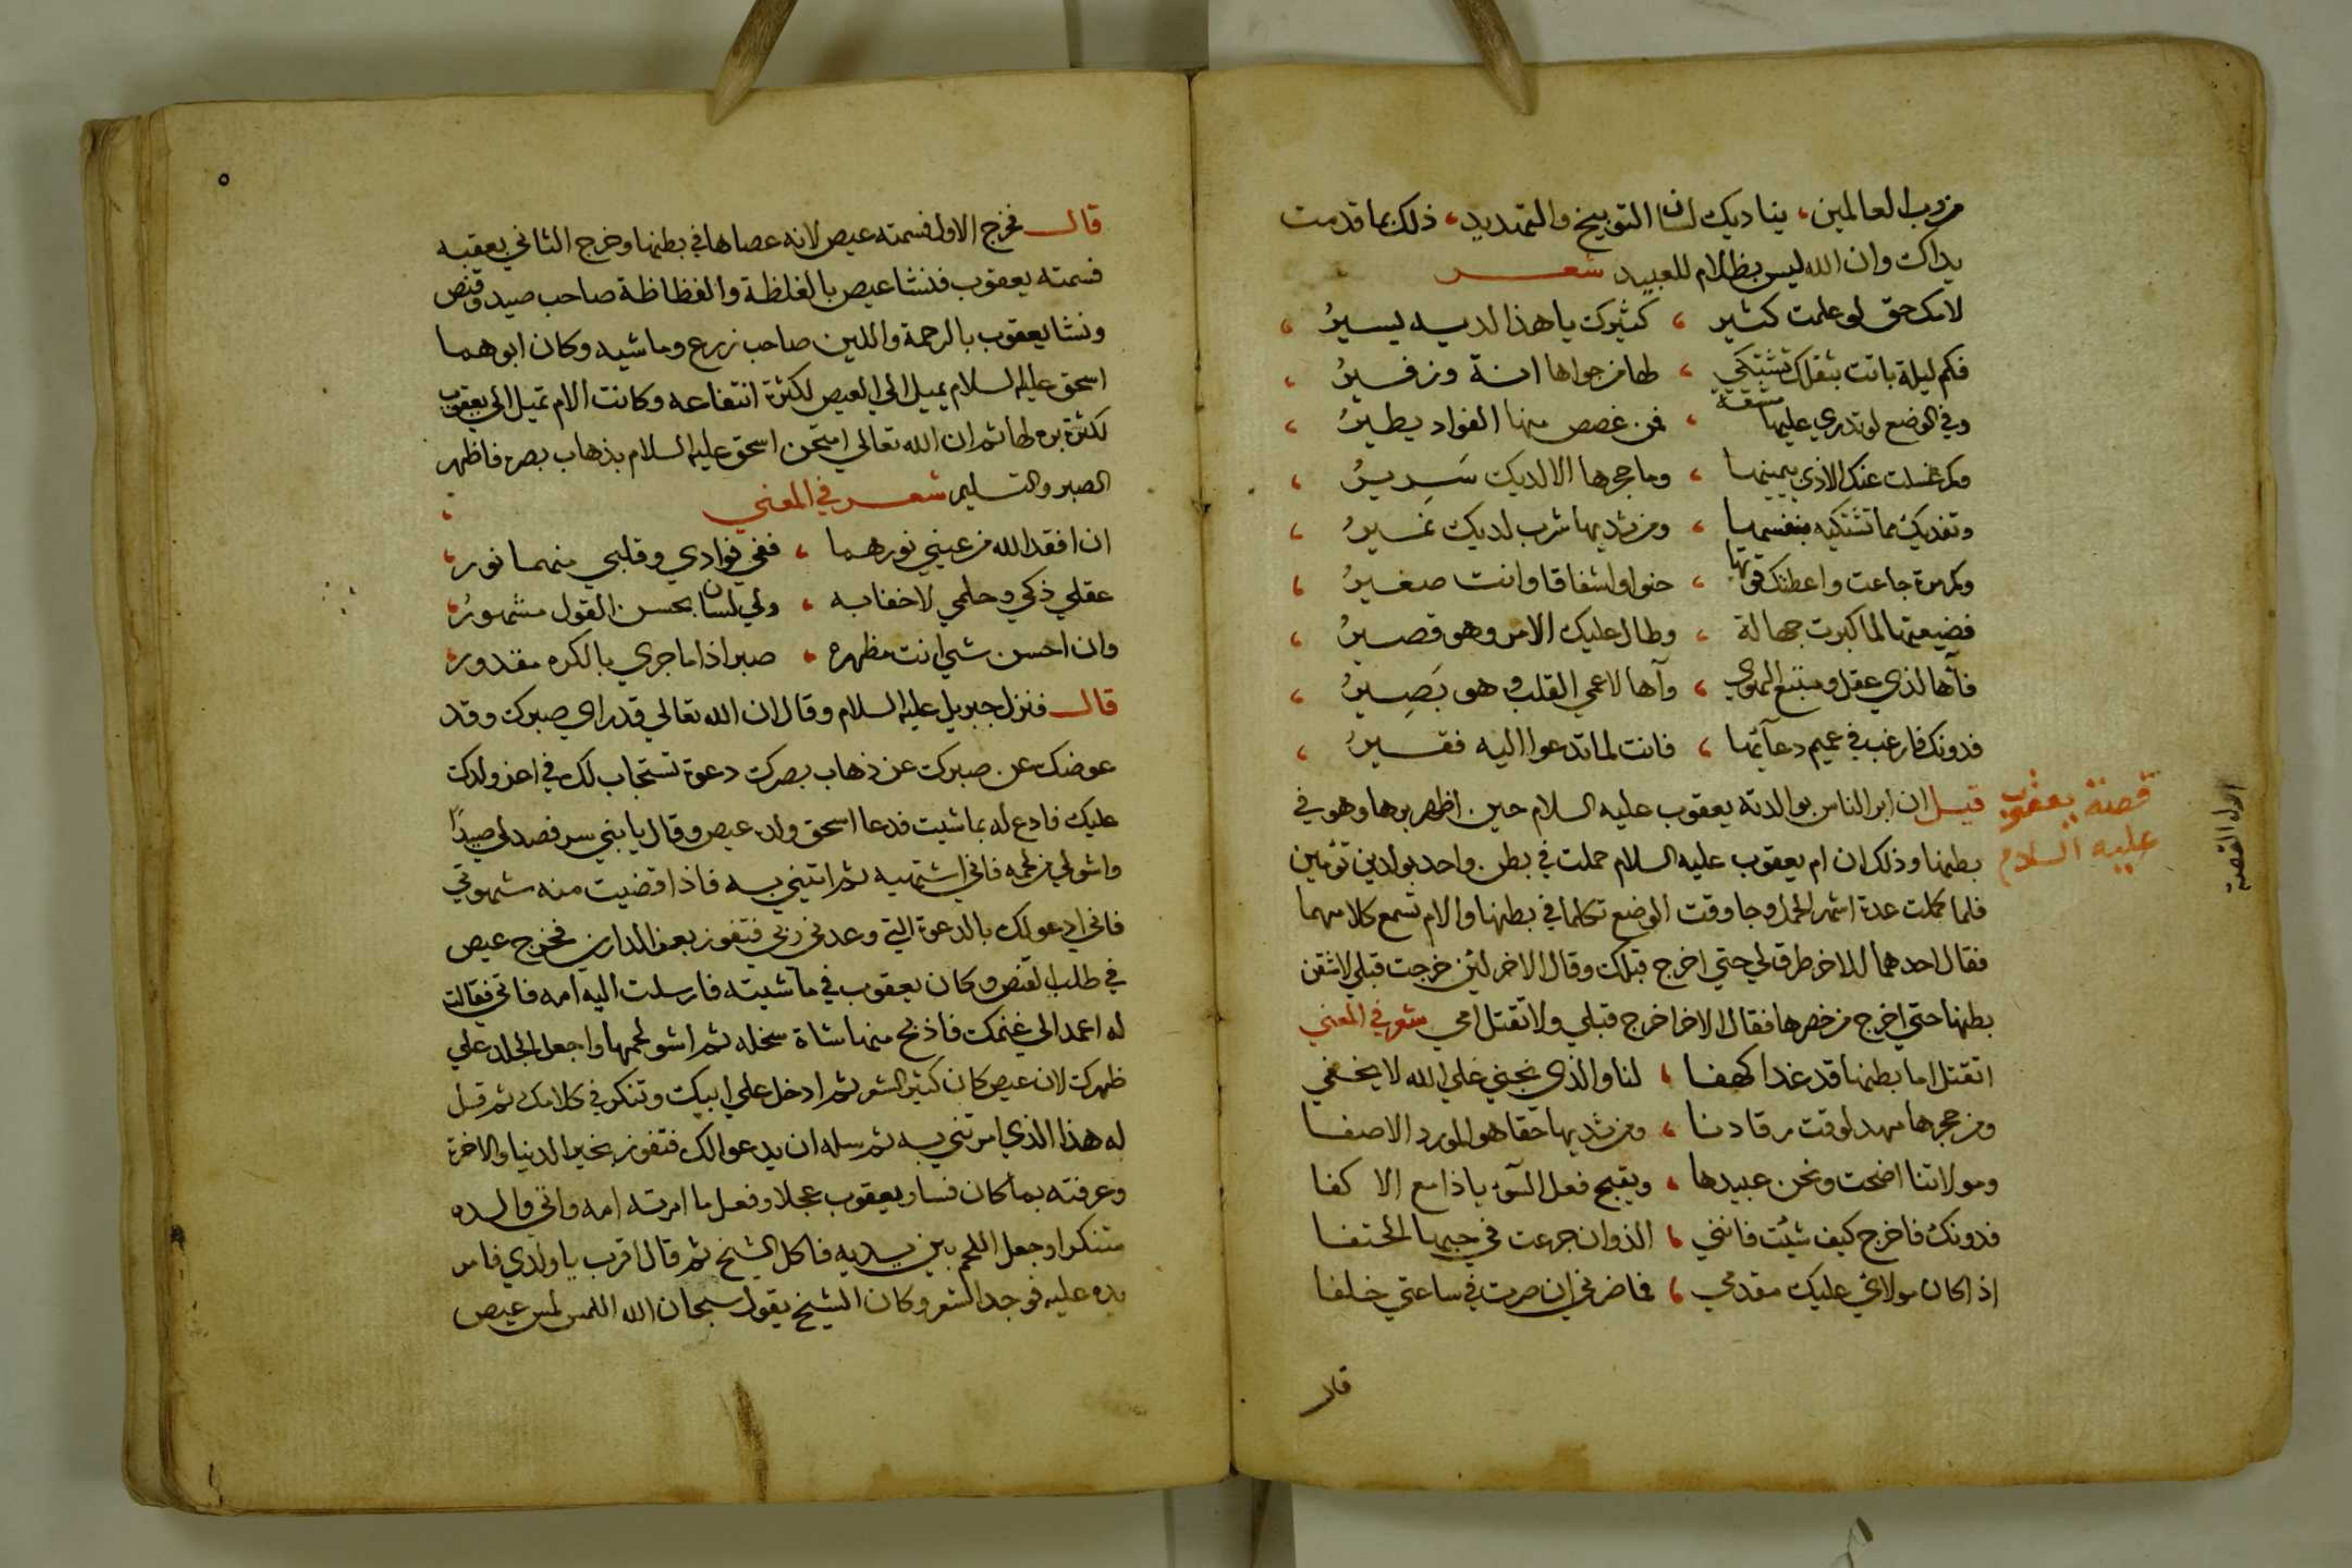 من رب العالمين، يناديك لسان التوبيخ والتهديد، ذلك بما قدمت
يداك وان الله ليس بظلام للعبيد شعر
لامك حق لو علمت كثير ، كثيرك يا هذا لديه يسير ،
فكم ليلة باتت بثقلك تشتكي ، لها من جواها انة وزفير ،
وفي الوضع لو تدري عليها مشقة ، فمن غصص منها الفواد يطير ،
وكم غسلت عنك الاذي بيمينها ، وما حجرها الا لديك سرير ،
وتفديك مما تشتكيه بنفسها ، ومن ثديها شرب لديك نمير ،
وكم مرة جاعت واعطتك قوتها ، حنوا واشفاقا وانت صغير ،
فضيعتها لما كبرت جهالة ، وطال عليك الامر وهو قصير ،
فآها لذي عقل ومتبع الهوي ، وآها لاعمي القلب وهو بصير ،
فدونك فارغب في عميم دعآئها ، فانت لما تدعوا اليه فقير ،
قصة يعقوب
عليه السلام
اول القصة
قيل ان ابر الناس بوالدته يعقوب عليه السلام حين اظهر برها وهو في
بطنها وذلك ان ام يعقوب عليه السلام حملت في بطن واحد بولدين توئمين
فلما كملت عدة اشهر الحمل وجا وقت الوضع تكلما في بطنها والام تسمع كلامهما
فقال احدهما للاخر طرق لي حتي اخرج قبلك وقال الاخر لئن خرجت قبلي لاشقن
بطنها حتي اخرج من خصرها فقال الاخر اخرج قبلي ولا تقتل امي شعر في المعني
اتقتل اما بطنها قد غدا كهفا ، لنا والذي نجني علي الله لا يخفي
ومن حجرها مهد لوقت رقادنا ، ومن ثديها حقا هو المورد الاصفا
ومولاتنا اضحت ونحن عبيدها ، ويقبح فعل السوء يا ذا مع الاكفا
فدونك فاخرج كيف شئت فانني ، الذ وان جرعت في حبها الحتفا
اذا كان مولاي عليك مقدمي ، فما ضرني ان صرت في ساعتي خلفا
قال
٥
قال فخرج الاول فسمته عيص لانه عصاها في بطنها وخرج الثاني بعقبه
فسمته يعقوب فنشا عيص بالغلظة والفظاظة صاحب صيد وقنص
ونشا يعقوب بالرحمة واللين صاحب زرع وماشيه وكان ابوهما
اسحق عليه السلام يميل الي العيص لكثرة انتفاعه وكانت الام تميل الي يعقوب
لكثرة بره لها ثم ان الله تعالي امتحن اسحق عليه السلام بذهاب بصره فاظهر
الصبر والتسليم شعر في المعني ،
ان افقد الله من عيني نورهما ، ففي فوادي وقلبي منهما نور ،
عقلي ذكي وحلمي لا خفا به ، ولي لسان بحسن القول مشهور ،
وان احسن شي انت مظهره ، صبرا اذا ما جري بالكره مقدور ،
قال فنزل جبريل عليه السلام وقال ان الله تعالي قد راي صبرك وقد
عوضك عن صبرك عن ذهاب بصرك دعوة تستجاب لك في اعز ولدك
عليك فادع له بما شيت فدعا اسحق ولده عيص وقال يا بني سر فصد لي صيدًا
واشو لي من لحمه فاني اشتهيه ثم ائتيني به فاذا قضيت منه شهوتي
فاني ادعو لك بالدعوة التي وعدني ربي فتفوز بعز الدارين فخرج عيص
في طلب القنص وكان يعقوب في ماشيته فارسلت اليه امه فاتي فقالت
له اعمد الي غنمك فاذبح منها شاة سخله ثم اشو لحمها واجعل الجلد علي
ظهرك لان عيص كان كثير الشعر ثم ادخل علي ابيك وتنكر في كلامك ثم قل
له هذا الذي امرتني به ثم سله ان يدعوا لك فتفوز بخير الدنيا والاخرة
وعرفته بما كان فسار يعقوب عجلا وفعل ما امرته امه واتي والده
متنكرا وجعل اللحم بين يديه فاكل الشيخ ثم قال اقرب يا ولدي فامر
يده عليه فوجد الشعر وكان الشيخ يقول سبحان الله اللمس لمس عيص